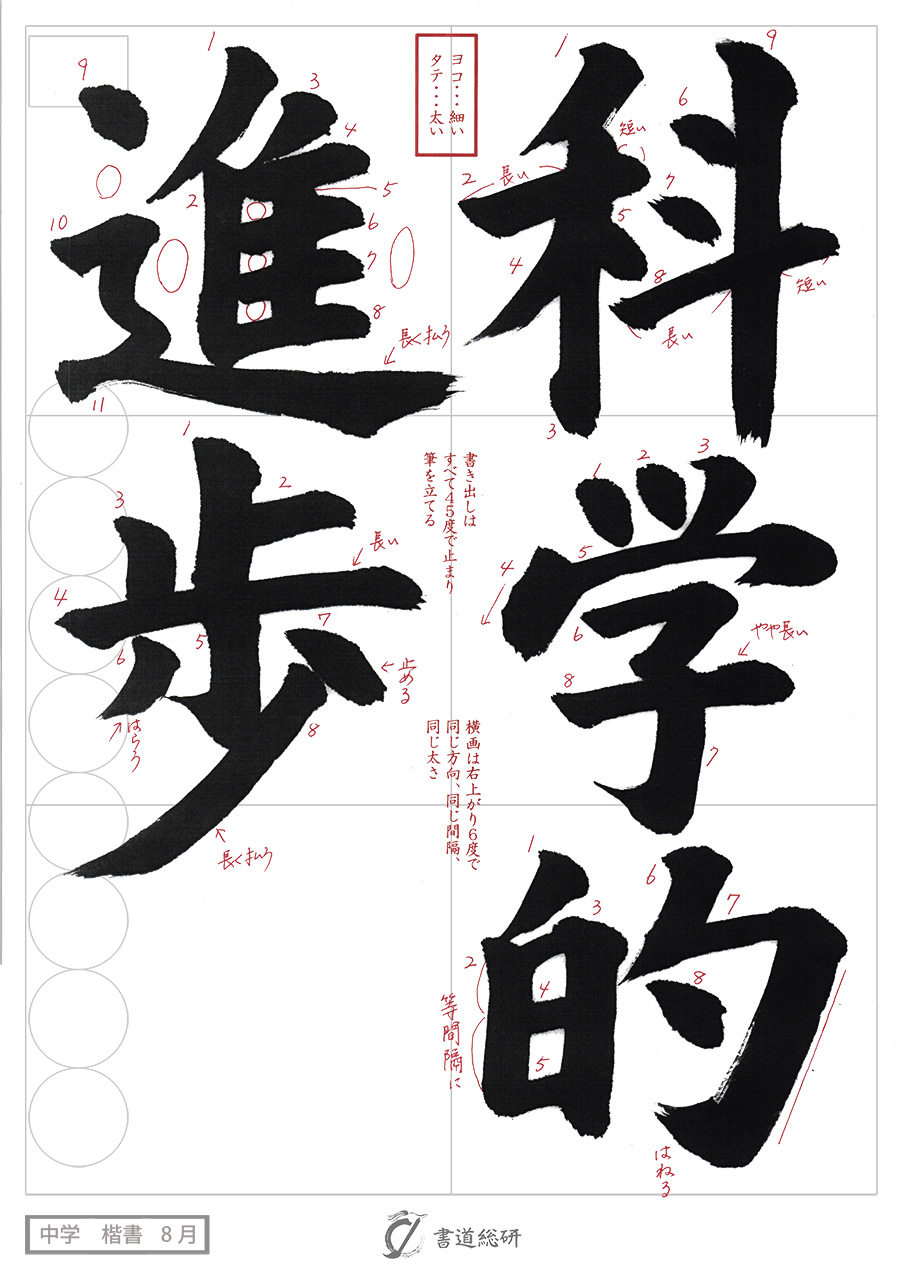 科学的
進歩
ヨコ・・・細い
タテ・・・太い
書き出しは
すべて45度で止まり
筆を立てる
横画は右上がり6度で
同じ方向、同じ間隔、
同じ太さ
1
2
3
4
5
6
7
8
9
長い
短い
長い
短い
1
2
3
4
5
6
7
8
やや長い
1
2
3
4
5
6
7
8
等間隔に
はねる
1
2
3
4
5
6
7
8
9
10
11
長く払う
1
2
3
4
5
6
7
8
長い
止める
はらう
長く払う
中学 楷書 8月
書道総研